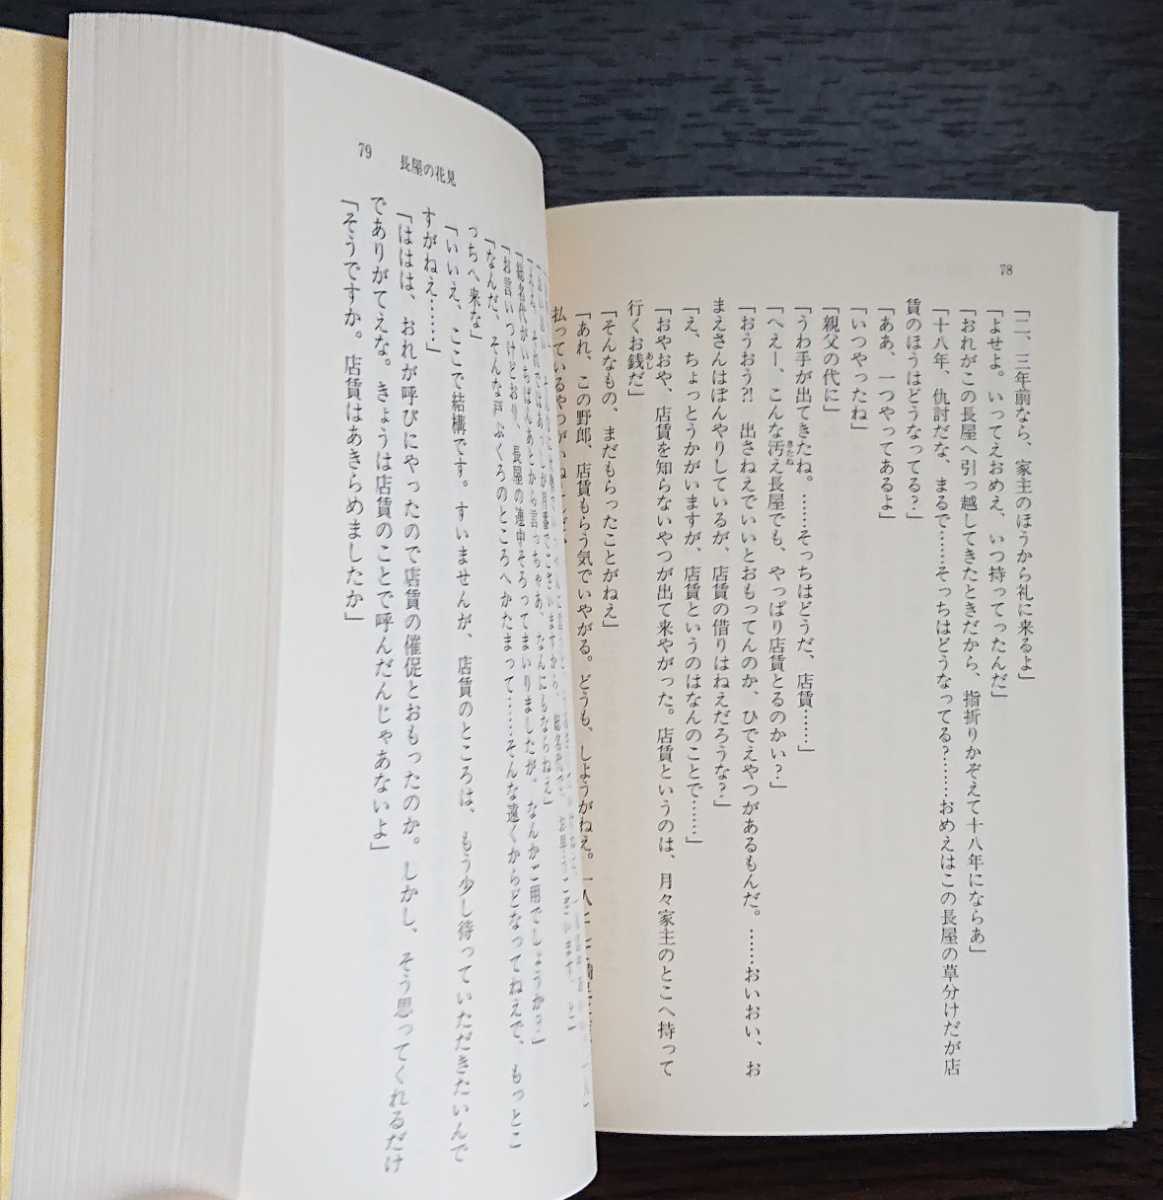 78
「二、三年前なら、家主のほうから礼に来るよ」
「よせよ。いってえおめえ、いつ持ってったんだ」
「おれがこの長屋へ引っ越してきたときだから、指折りかぞえて十八年にならあ」
「十八年、仇討だな、まるで……そっちはどうなってる？……おめえはこの長屋の草分けだが店
賃のほうはどうなってる？」
「ああ、一つやってあるよ」
「いつやったね」
「親父の代に」
「うわ手が出てきたね。……そっちはどうだ、店賃……」
「へえー、こんな汚え長屋でも、やっぱり店賃とるのかい？」
「おうおう?!　出さねえでいいとおもってんのか、ひでえやつがあるもんだ。……おいおい、お
まえさんはぼんやりしているが、店賃の借りはねえだろうな？」
「え、ちょっとうかがいますが、店賃というのはなんのことで……」
「おやおや、店賃を知らないやつが出て来やがった。店賃というのは、月々家主のとこへ持って
行くお銭だ」
「そんなもの、まだもらったことがねえ」
「あれ、この野郎、店賃もらう気でいやがる。どうも、しようがねえ。一人
払っているやつが
79
長屋の花見
「総名代がいちばんあとから言っちゃあ、なんにもならねえ」
「お言いつけどおり、長屋の連中そろってまいりましたが。なんかご用でしょうか？」
「なんだ、そんな戸ぶくろのところへかたまって……そんな遠くからどなってねえで、もっとこ
っちへ来な」
「いいえ、ここで結構です。すいませんが、店賃のところは、もう少し待っていただきたいんで
すがねえ……」
「ははは、おれが呼びにやったので店賃の催促とおもったのか。しかし、そう思ってくれるだけ
でありがてえな。きょうは店賃のことで呼んだんじゃあないよ」
「そうですか。店賃はあきらめましたか」